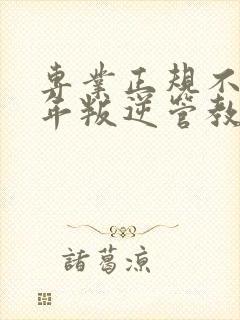 專業正規不
年叛逆管教
諸葛涼